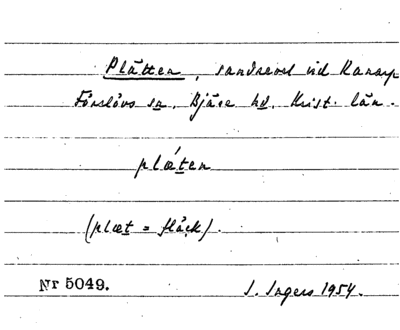 Plätten, sandrevel vid Ranarp
Förslövs sn. Bjäre hd. Krist. län.
plǽten
(plæt = fläck).
Nr 5049.
I. Ingers 1954.